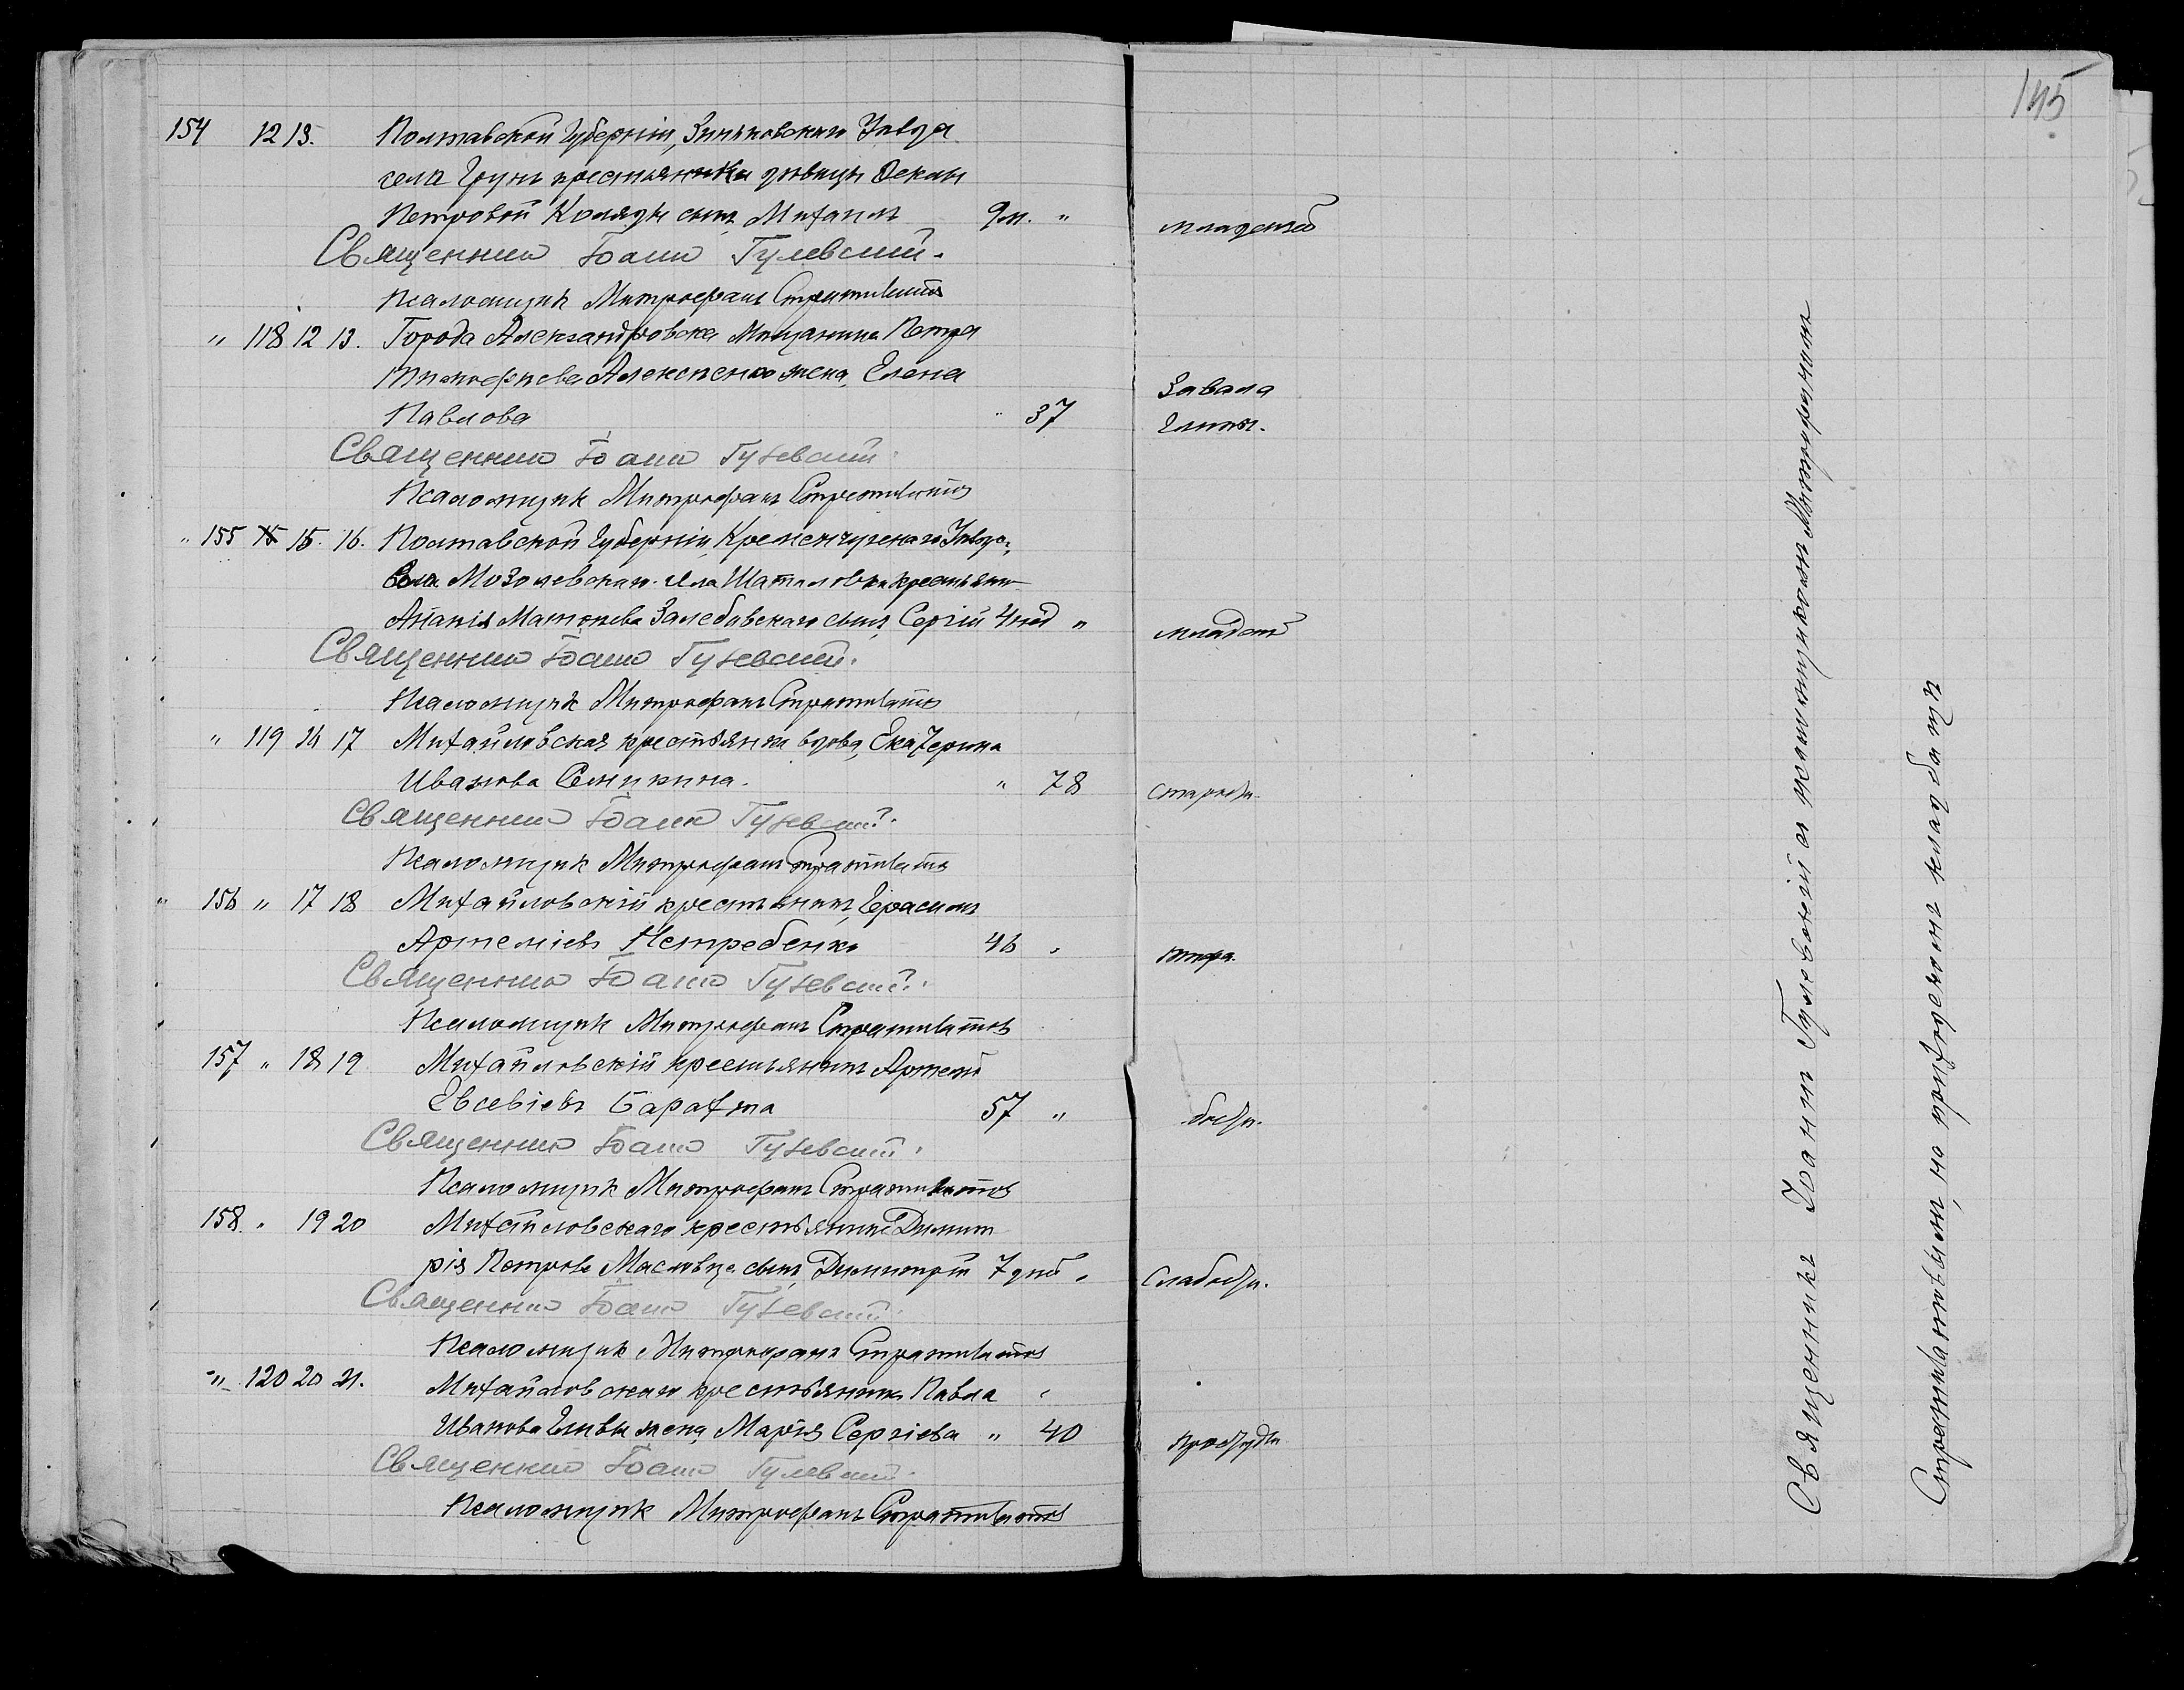 145
154 12 13. Полтавской Губерніи, Зиньковскаго Уѣзда
села Грунь крестьянки дѣвицы Ѳеклы
Петровой Коляды сынъ Михаилъ 9 м. "
младенч
Священник Іоанн Гулевский.
Псаломщик Митрофанъ Стратилатов
" 118 12 13. Города Александровска Мещанина Петра
Тимофѣева Алексѣенко жена, Елена
Павлова " 37
Священник Іоанн Гулевский
Псаломщик Митрофанъ Стратилатов
" 155 15. 16. Полтавской Губерніи, Кременчугскаго Уѣзда,
села Шатиловки крестьян
Ананія Матѳѣева сынъ, Сергій 4 нед "
младенч
Священник Іоанн Гулевский.
Псаломщик Митрофанъ Стратилатов
" 119 16 17 Михайловская крестьянка вдова, Екатерина
Иванова Семикина. " 78
Священник Іоанн Гулевский.
Псаломщик Митрофанъ Стратилатов
" 156 " 17 18 Михайловскій крестьянинъ, Герасимъ
Артеміевъ Нетребенко 46 "
Священник Іоанн Гулевский.
Псаломщик Митрофанъ Стратилатов
157 " 18 19 Михайловскій крестьянинъ Артемій
Евсевіевъ Барахта 57 "
Священник Іоанн Гулевский.
Псаломщик Митрофанъ Стратилатов
158 " 19 20 Михайловскаго крестьянина Димит
рія Петрова Масловца сынъ, Димитрій 7 дней "
Священник Іоанн Гулевский.
Псаломщик Митрофанъ Стратилатов
" 120 20 21. Михайловскаго крестьянина Павла
Иванова жена, Марія Сергіева " 40
Священник Іоанн Гулевский.
Псаломщик Митрофанъ Стратилатов
Священникъ Іоаннъ Гулевскій съ псаломщикомъ Митрофаномъ
Стратилатовымъ, на приходскомъ кладбищѣ